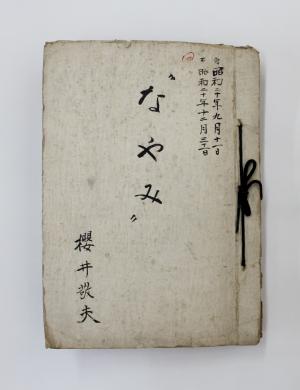 自昭和二十年九月十一日
至昭和二十年十二月三十一日
〝なやみ〟
櫻井敬夫